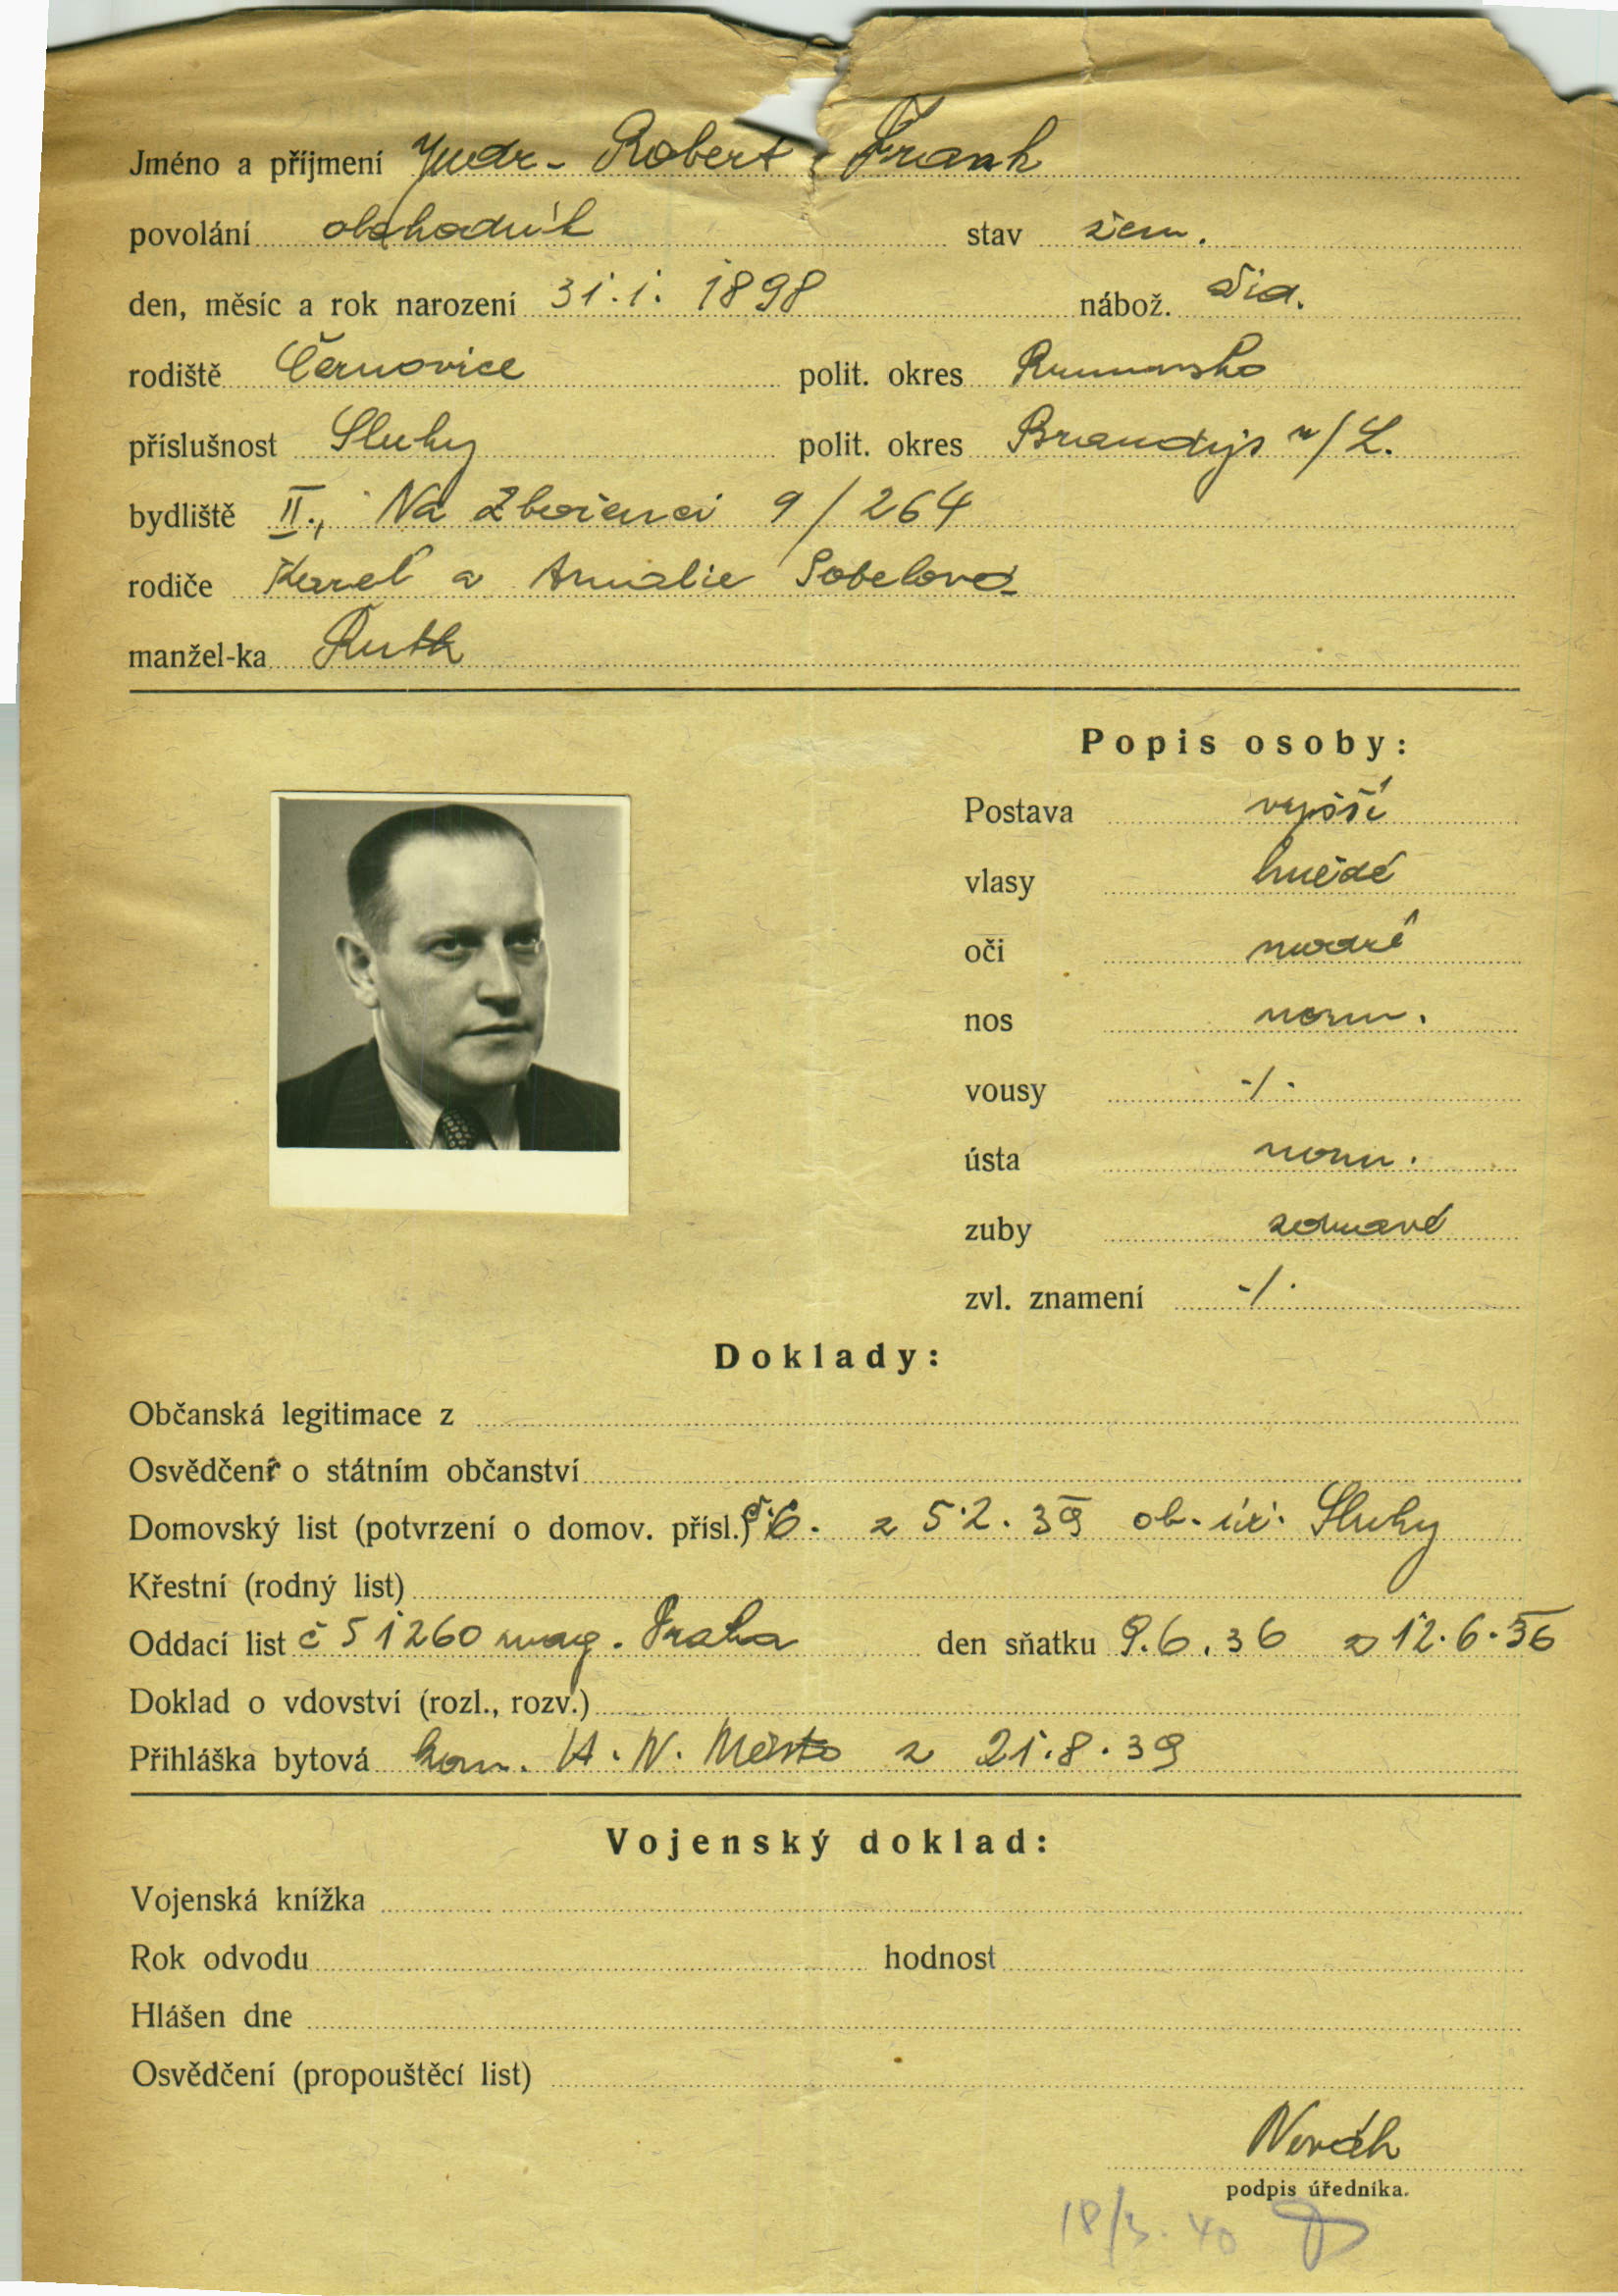 Jméno a příjmení Judr. Robert Frank
povolání obchodník stav žen.
den, měsíc a rok narození 31.1. 1898 nábož. žid.
rodiště Černovice polit. okres Rumunsko
příslušnost Sluhy polit. okres Brandýs n/L.
bydliště II., Na Zbořenci 9/264
rodiče Karel a Amalie Sobelová
manžel-ka Ruth
Popis osoby:
Postava vyšší
vlasy hnědé
oči modré
nos norm.
vousy -/-
ústa norm.
zuby zdravé
zvl. znamení -/-
Doklady:
Občanská legitimace z
Osvědčení o státním občanství
Domovský list (potvrzení o domov. přísl.) č.6. z 5.2.39 ob. úř. Sluhy
Křestní (rodný list)
Oddací list č 51260 mag. Praha den sňatku 9.6.36 z 12.6.36
Doklad o vdovství (rozl., rozv.)
Přihláška bytová kom. N. Město z 21.8.39
Vojenský doklad:
Vojenská knížka
Rok odvodu hodnost
Hlášen dne
Osvědčení (propouštěcí list)
Novák
podpis úředníka.
18/3. 40